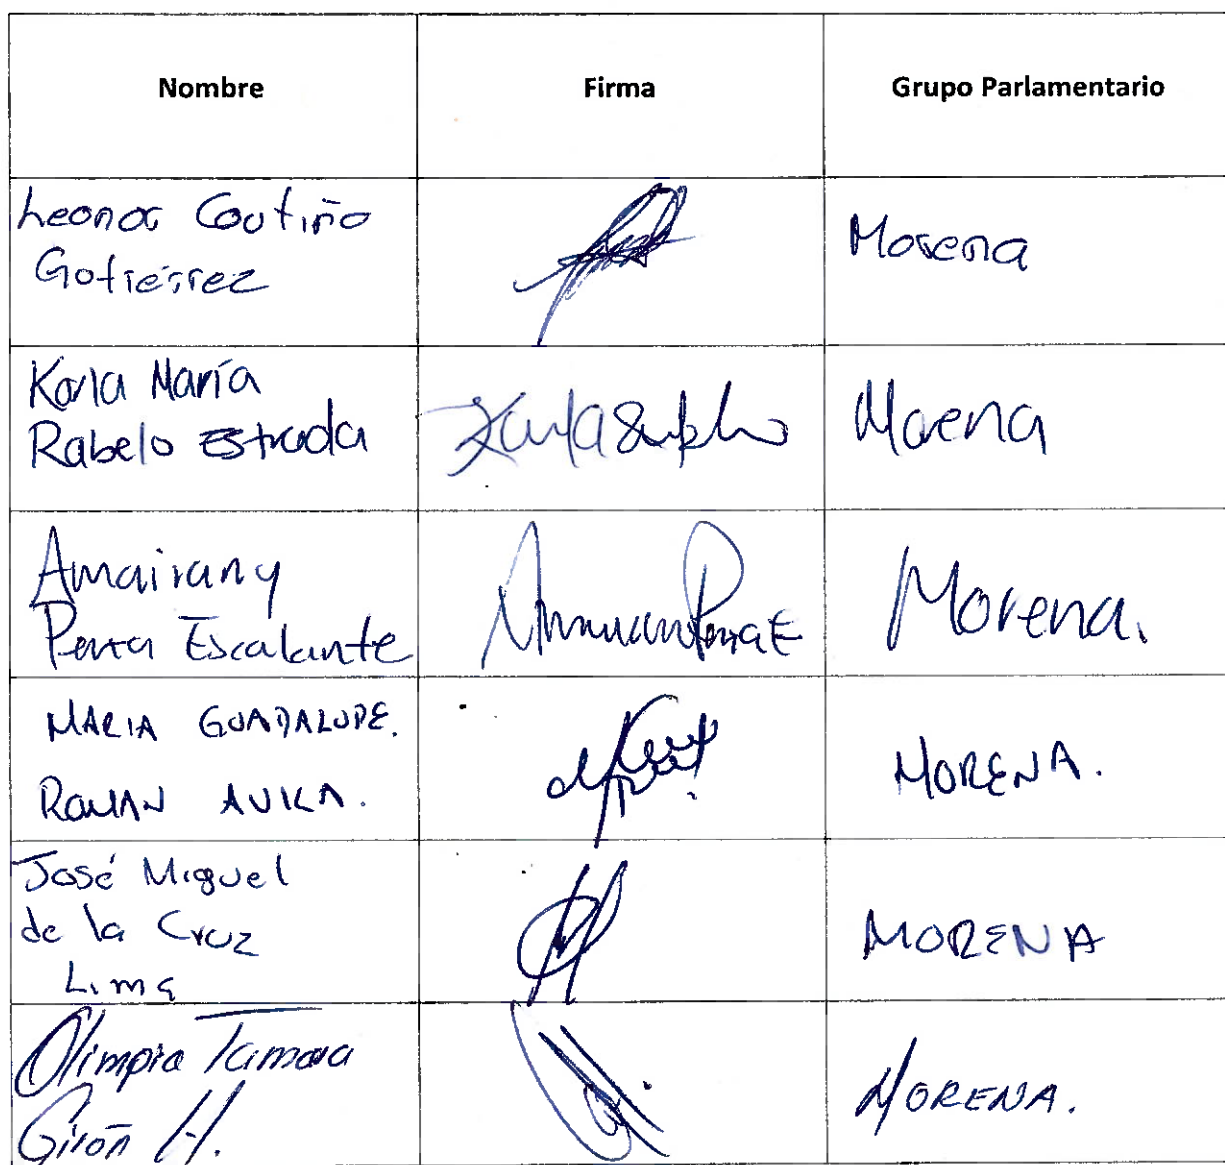 Nombre Firma Grupo Parlamentario
Leonor Coutiño
Gutiérrez
Morena
Karla María
Rabelo Estrada
Morena
Amairany
Peña Escalante
Morena.
MARIA GUADALUPE.
ROMAN AVILA.
MORENA.
José Miguel
de la Cruz
Lima
MORENA
Olimpia Tamara
Girón H.
MORENA.